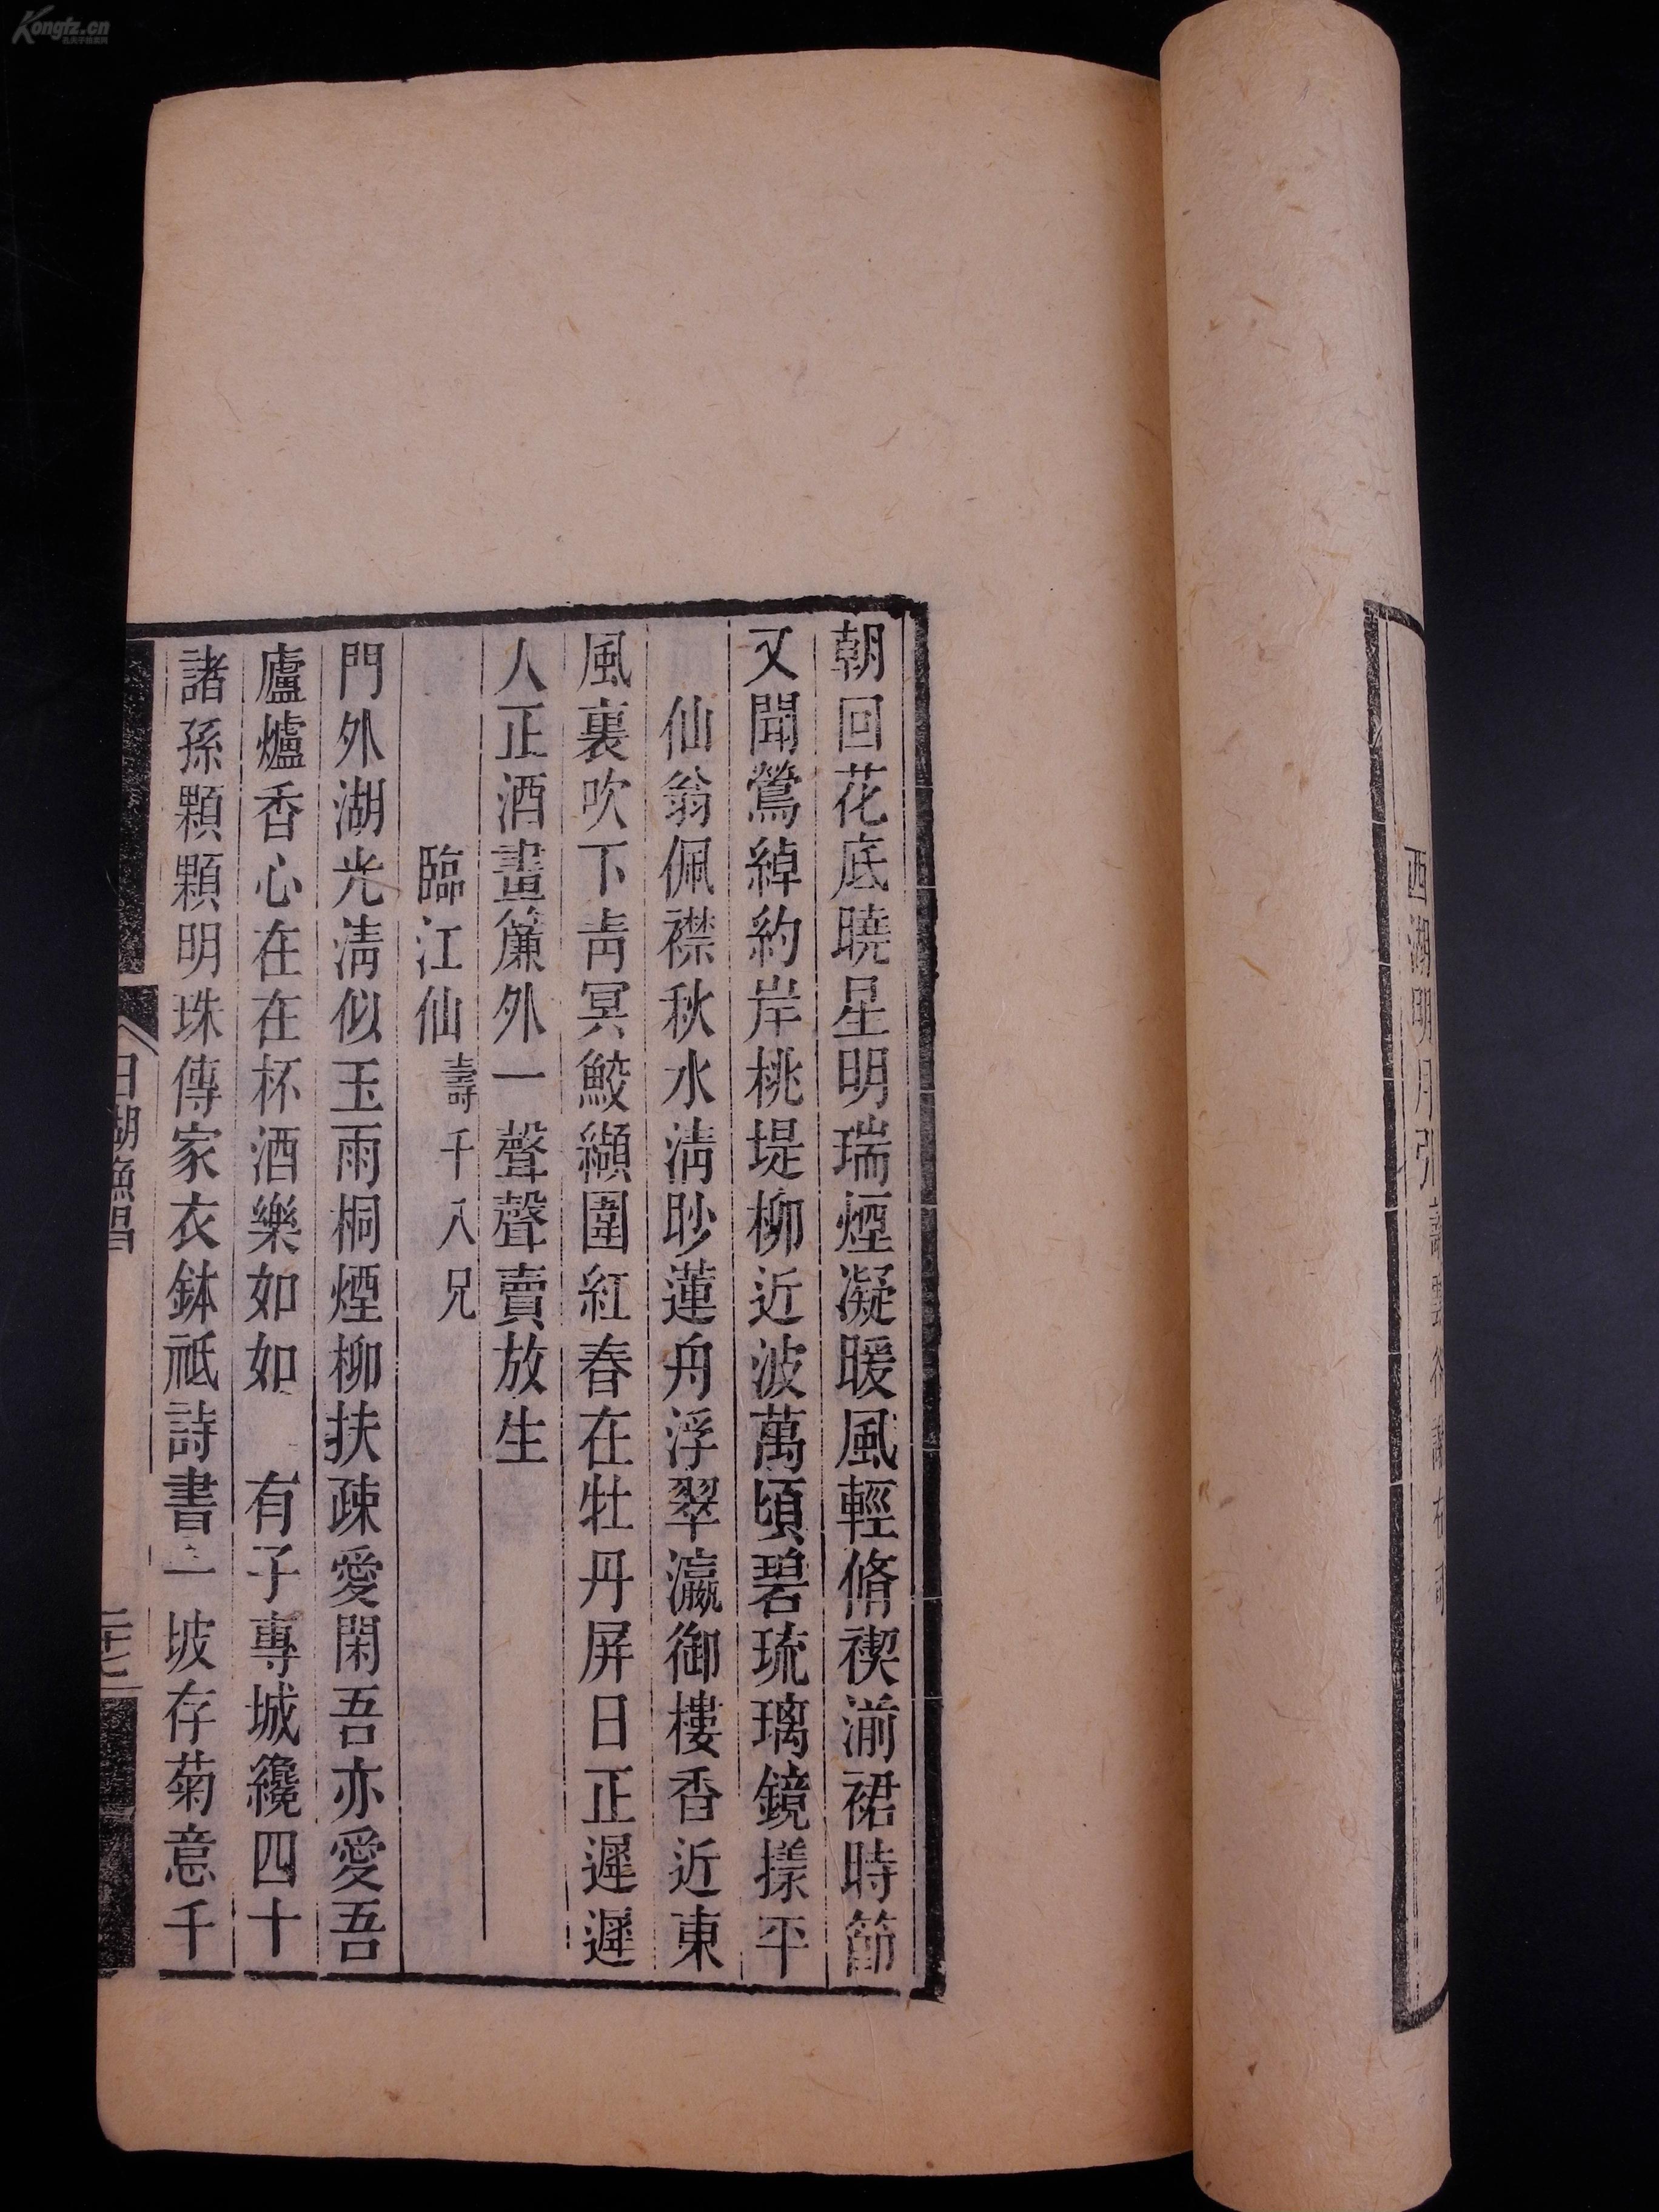 西湖明月引
朝回花底曉星明瑞煙凝暖風輕脩禊湔裙時節
又聞鶯綽約岸桃堤柳近波萬頃碧琉璃鏡㨾平
仙翁佩襟秋水淸眇蓮舟浮翠瀛御樓香近東
風裏吹下靑冥鮫纈圍紅春在牡丹屏日正遲遲
人正酒畫簾外一聲聲賣放生
臨江仙壽千八兄
門外湖光淸似玉雨桐煙柳扶疎愛閑吾亦愛吾
廬爐香心在在杯酒樂如如 有子專城纔四十
諸孫顆顆明珠傳家衣鉢祗詩書一坡存菊意千
日湖漁唱
Kongfz.cn